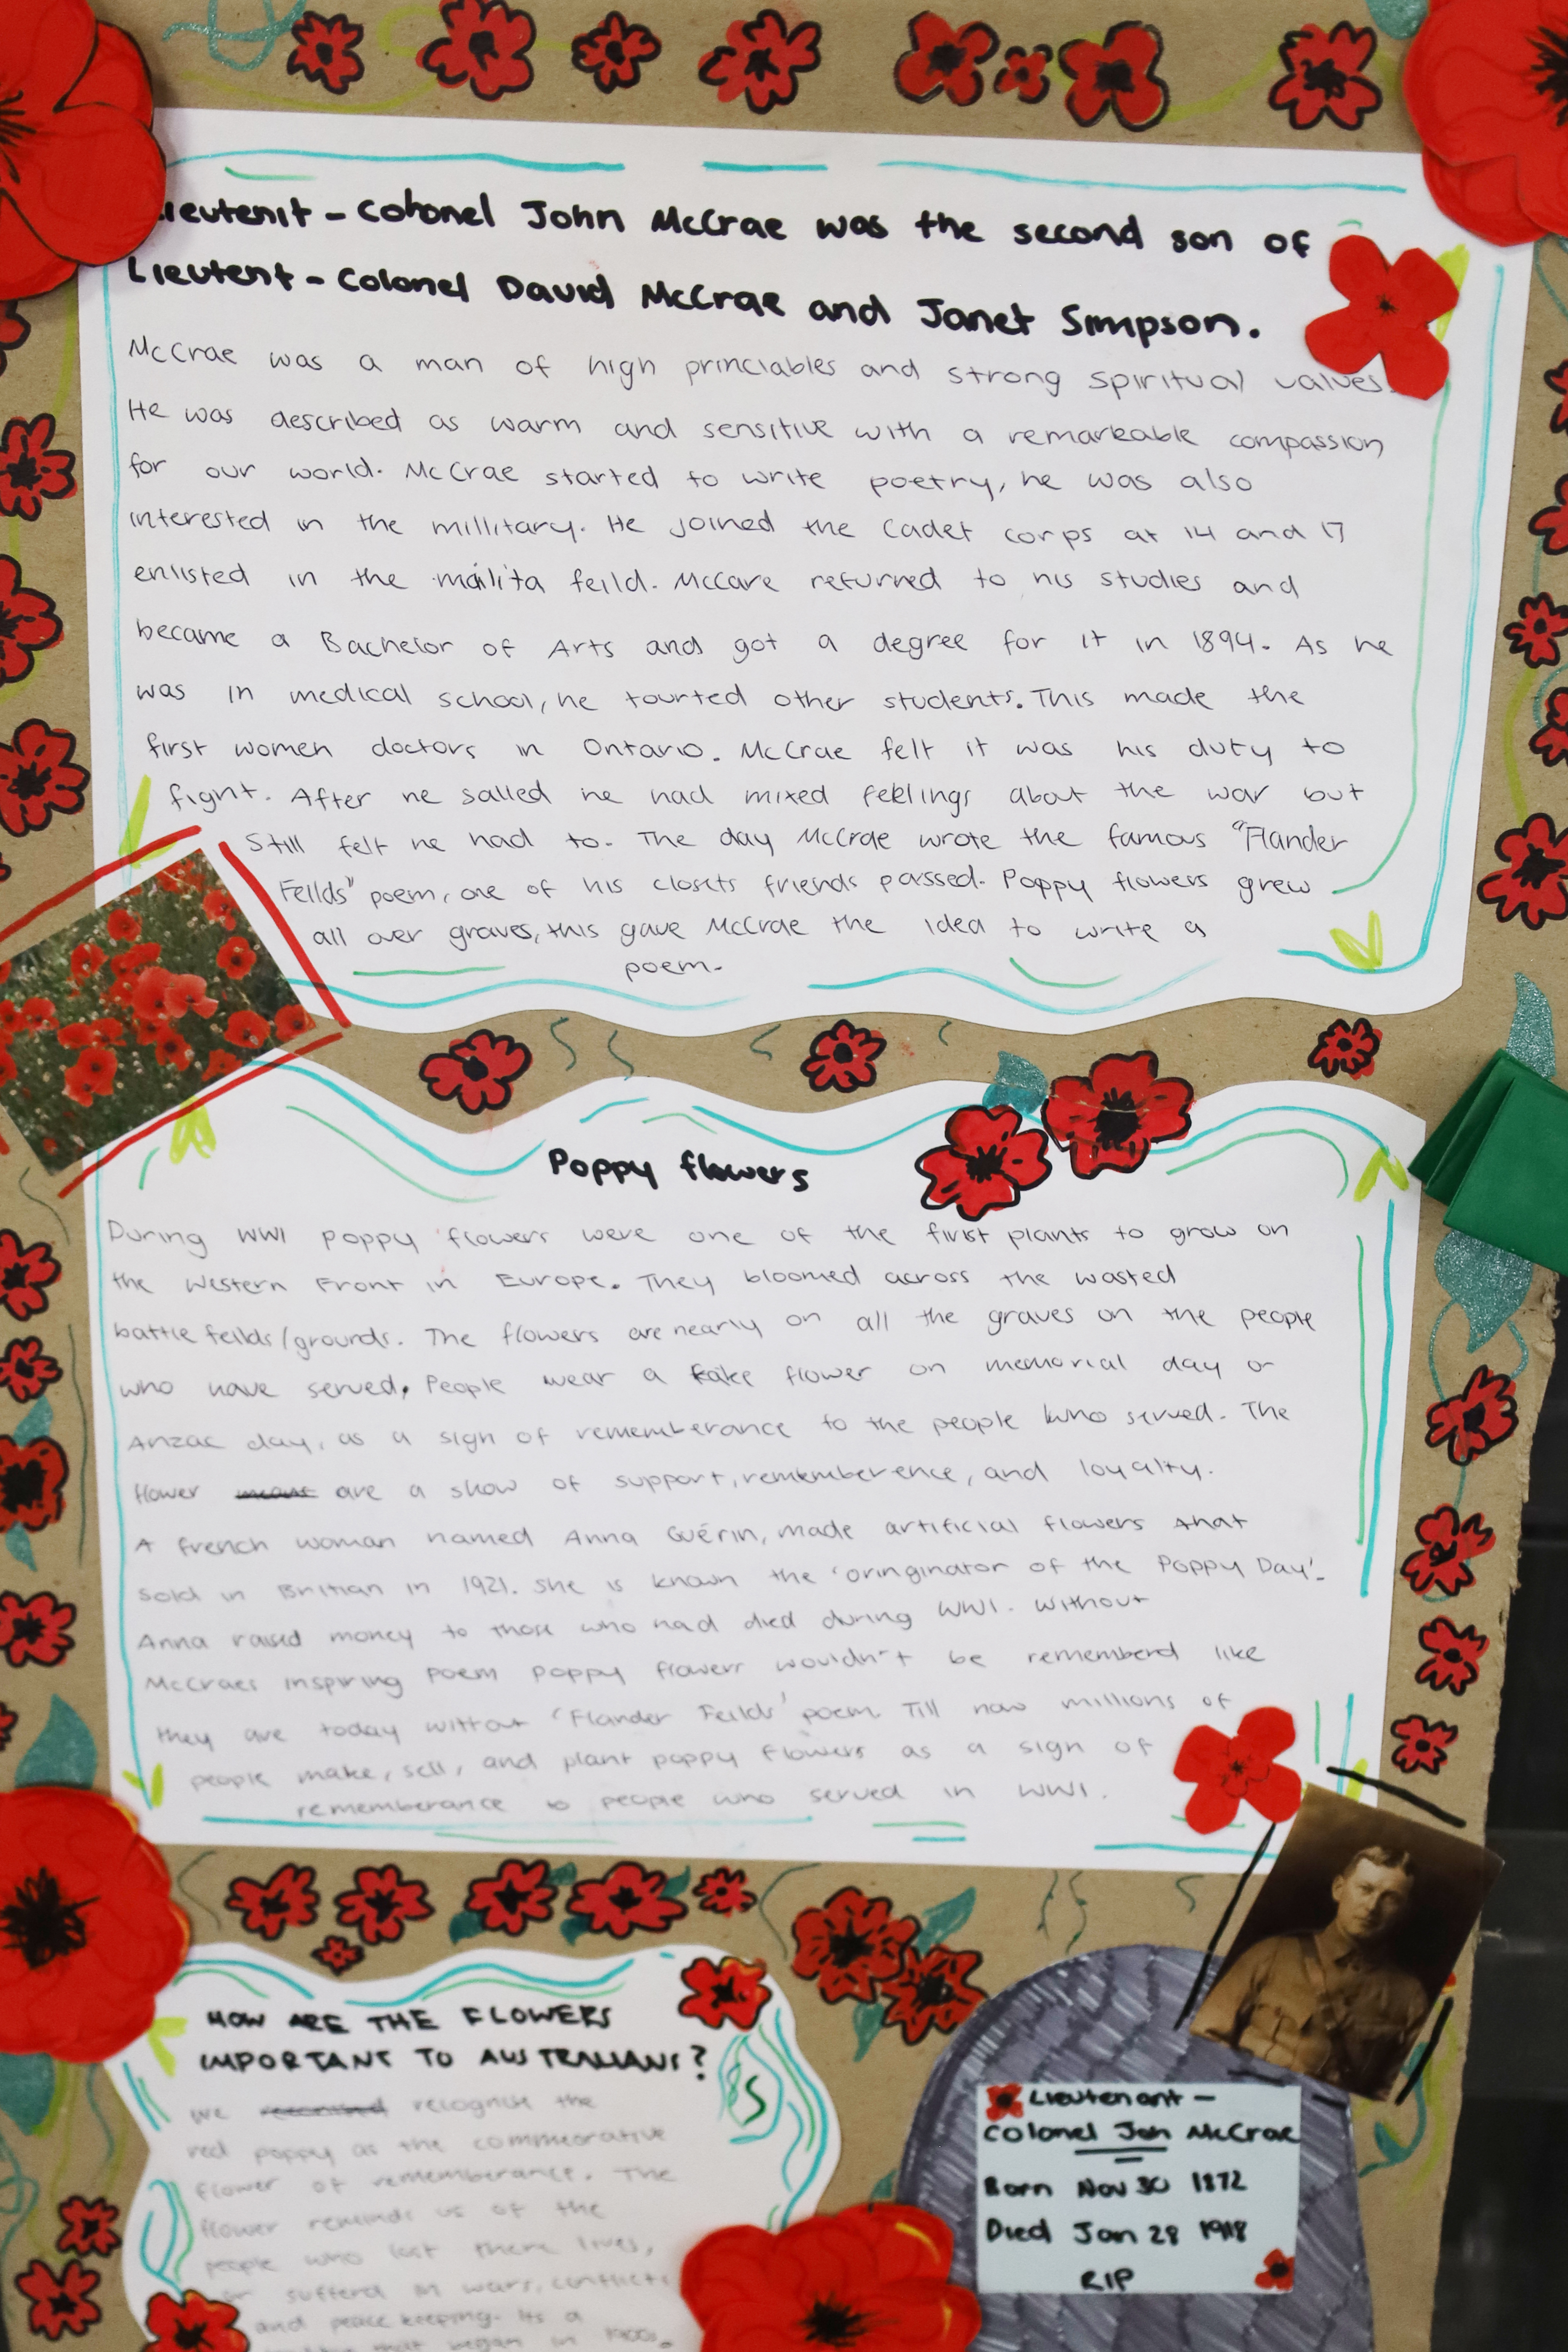 Lieutenit - Colonel John McCrae was the second son of
Lieutent - Colonel David McCrae and Janet Simpson.
McCrae was a man of high princiables and strong spiritual values.
He was described as warm and sensitive with a remarkable compassion
for our world. McCrae started to write poetry, he was also
interested in the millitary. He joined the Cadet corps at 14 and 17
enlisted in the mailita feild. McCare returned to his studies and
became a Bachelor of Arts and got a degree for it in 1894. As he
was in medical school, he tourted other students. This made the
first women doctors in Ontario. McCrae felt it was his duty to
fight. After he salled he had mixed feelings about the war but
still felt he had to. The day McCrae wrote the famous "Flander
Feilds" poem, one of his closets friends passed. Poppy flowers grew
all over graves, this gave McCrae the idea to write a
poem.
Poppy flowers
During WW1 poppy flowers were one of the first plants to grow on
the Western Front in Europe. They bloomed across the wasted
battle feilds/grounds. The flowers are nearly on all the graves on the people
who have served. People wear a fake flower on memorial day or
Anzac day, as a sign of rememberance to the people who served. The
flower means are a show of support, rememberence, and loyalty.
A french woman named Anna Guérin, made artificial flowers that
sold in Britian in 1921. She is known the 'oringinator of the Poppy Day'.
Anna raised money to those who had died during WW1. Without
McCraes inspiring poem poppy flowers wouldn't be rememberd like
they are today without 'Flander Feilds' poem. Till now millions of
people make, sell, and plant poppy flowers as a sign of
rememberance to people who served in WW1.
HOW ARE THE FLOWERS
IMPORTANT TO AUSTRALIANS?
We recognise the
red poppy as the commeorative
flower of rememberance. The
flower reminds us of the
people who lost there lives,
or sufferd in wars, conflicts
and peace keeping. Its a
that began in 1900s.
Lieutenant -
Colonel Jon McCrae
Born Nov 30 1872
Died Jan 28 1918
RIP